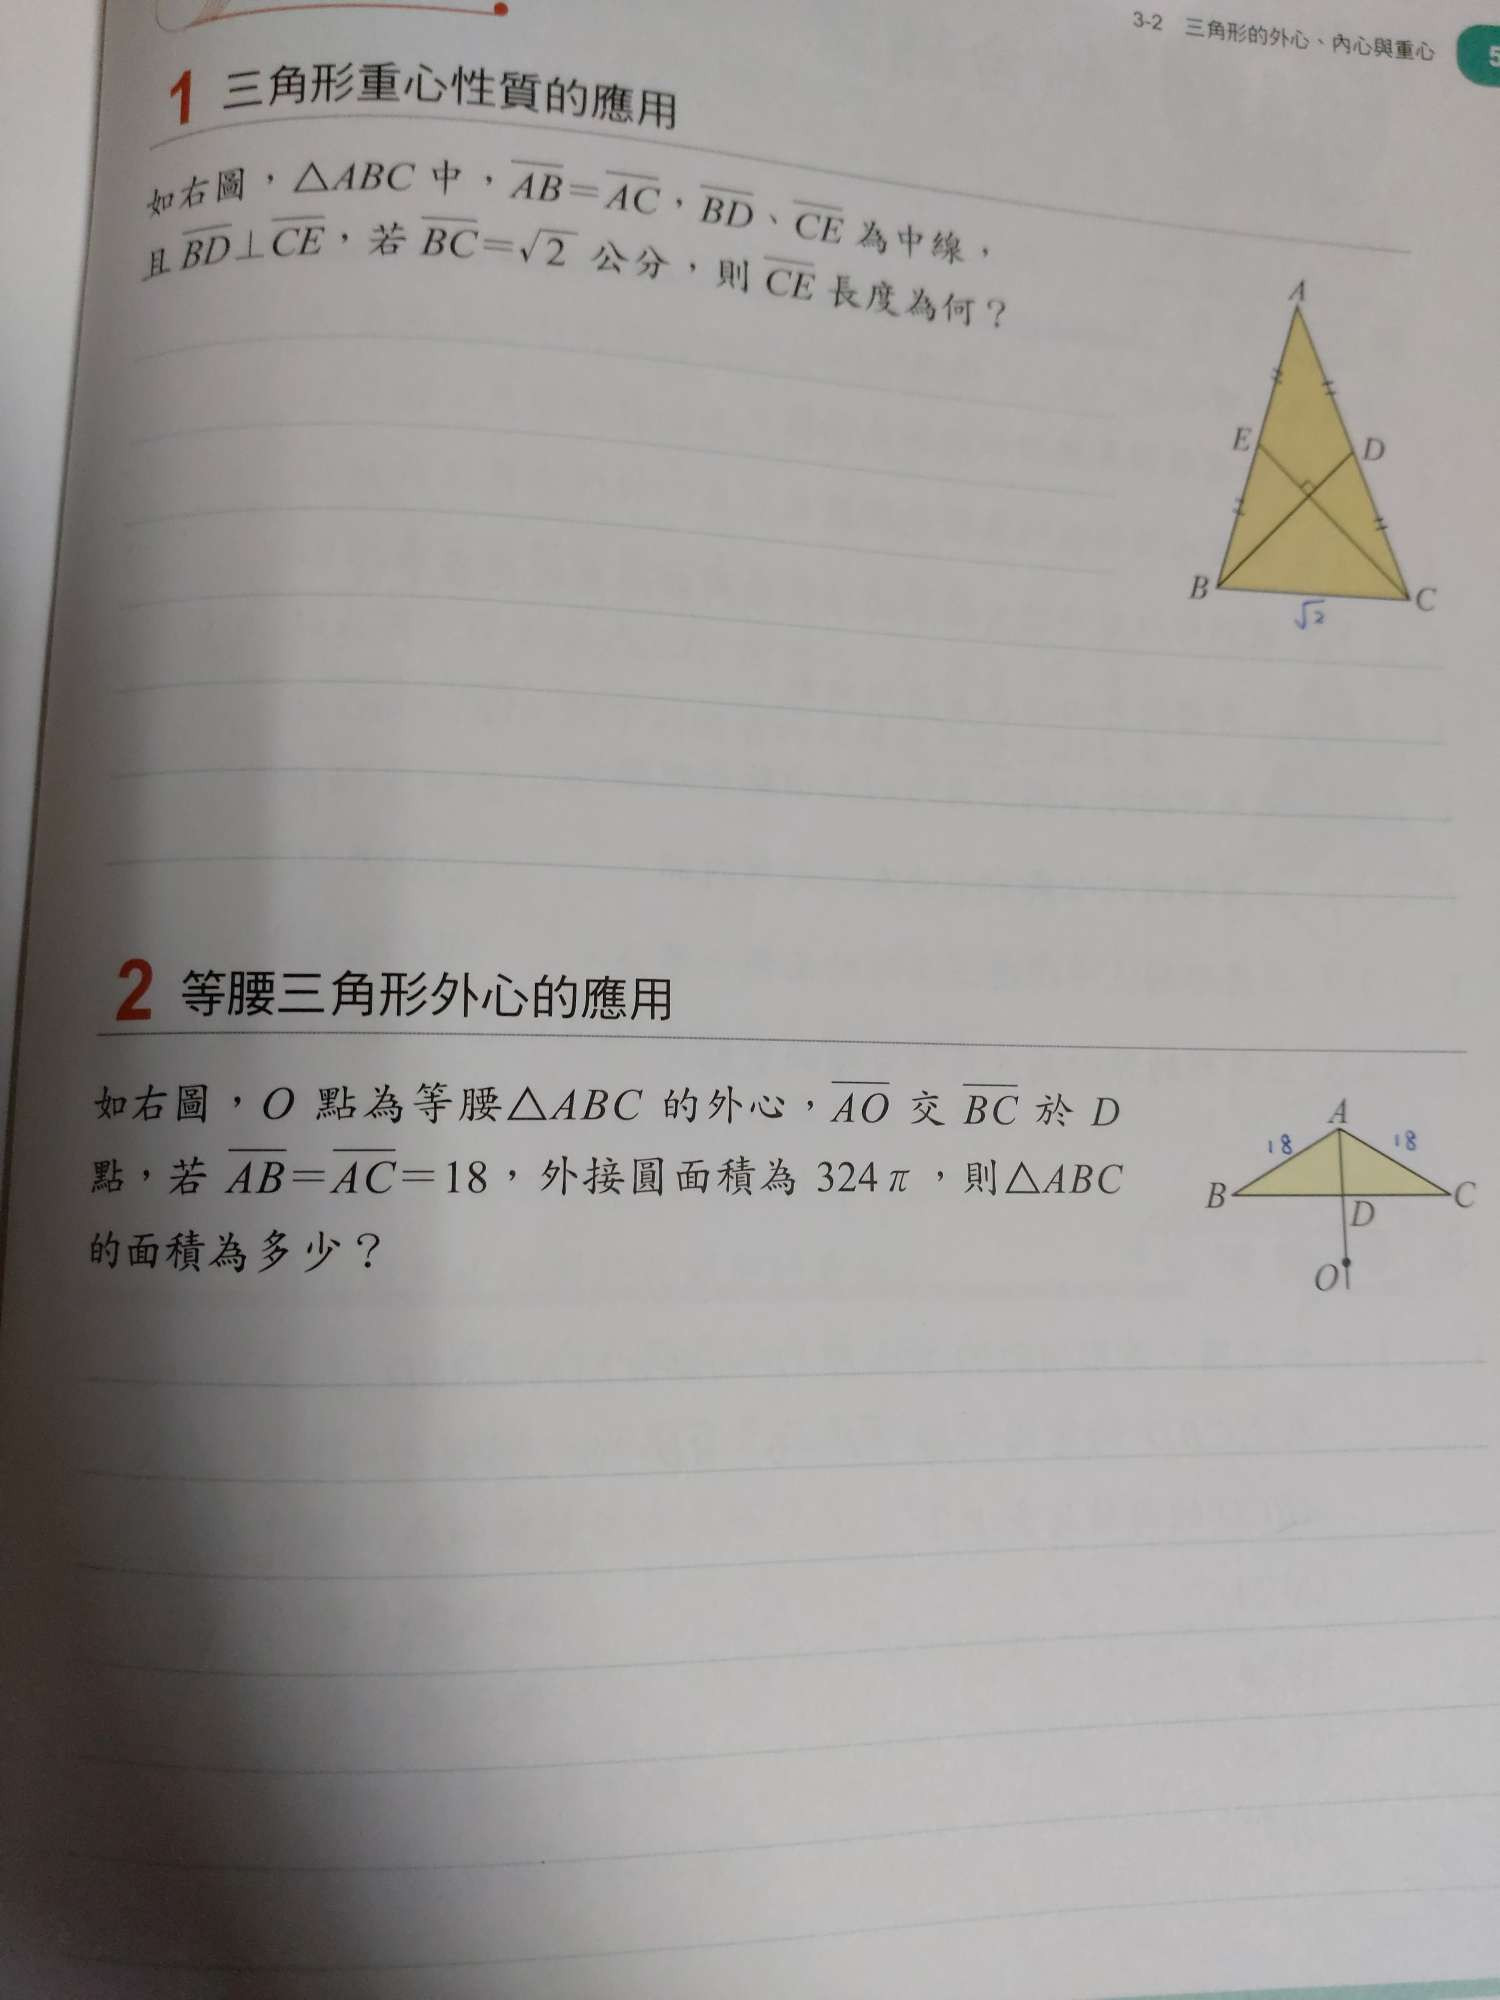 3-2 三角形的外心、內心與重心
5
1 三角形重心性質的應用
如右圖，△ABC 中，AB=AC，BD、CE 為中線，
且 BD⊥CE，若 BC=√2 公分，則 CE 長度為何？
A
E
D
B
C
√2
2 等腰三角形外心的應用
如右圖，O 點為等腰△ABC 的外心，AO 交 BC 於 D
點，若 AB=AC=18，外接圓面積為 324π，則△ABC
的面積為多少？
A
18
18
B
D
C
O